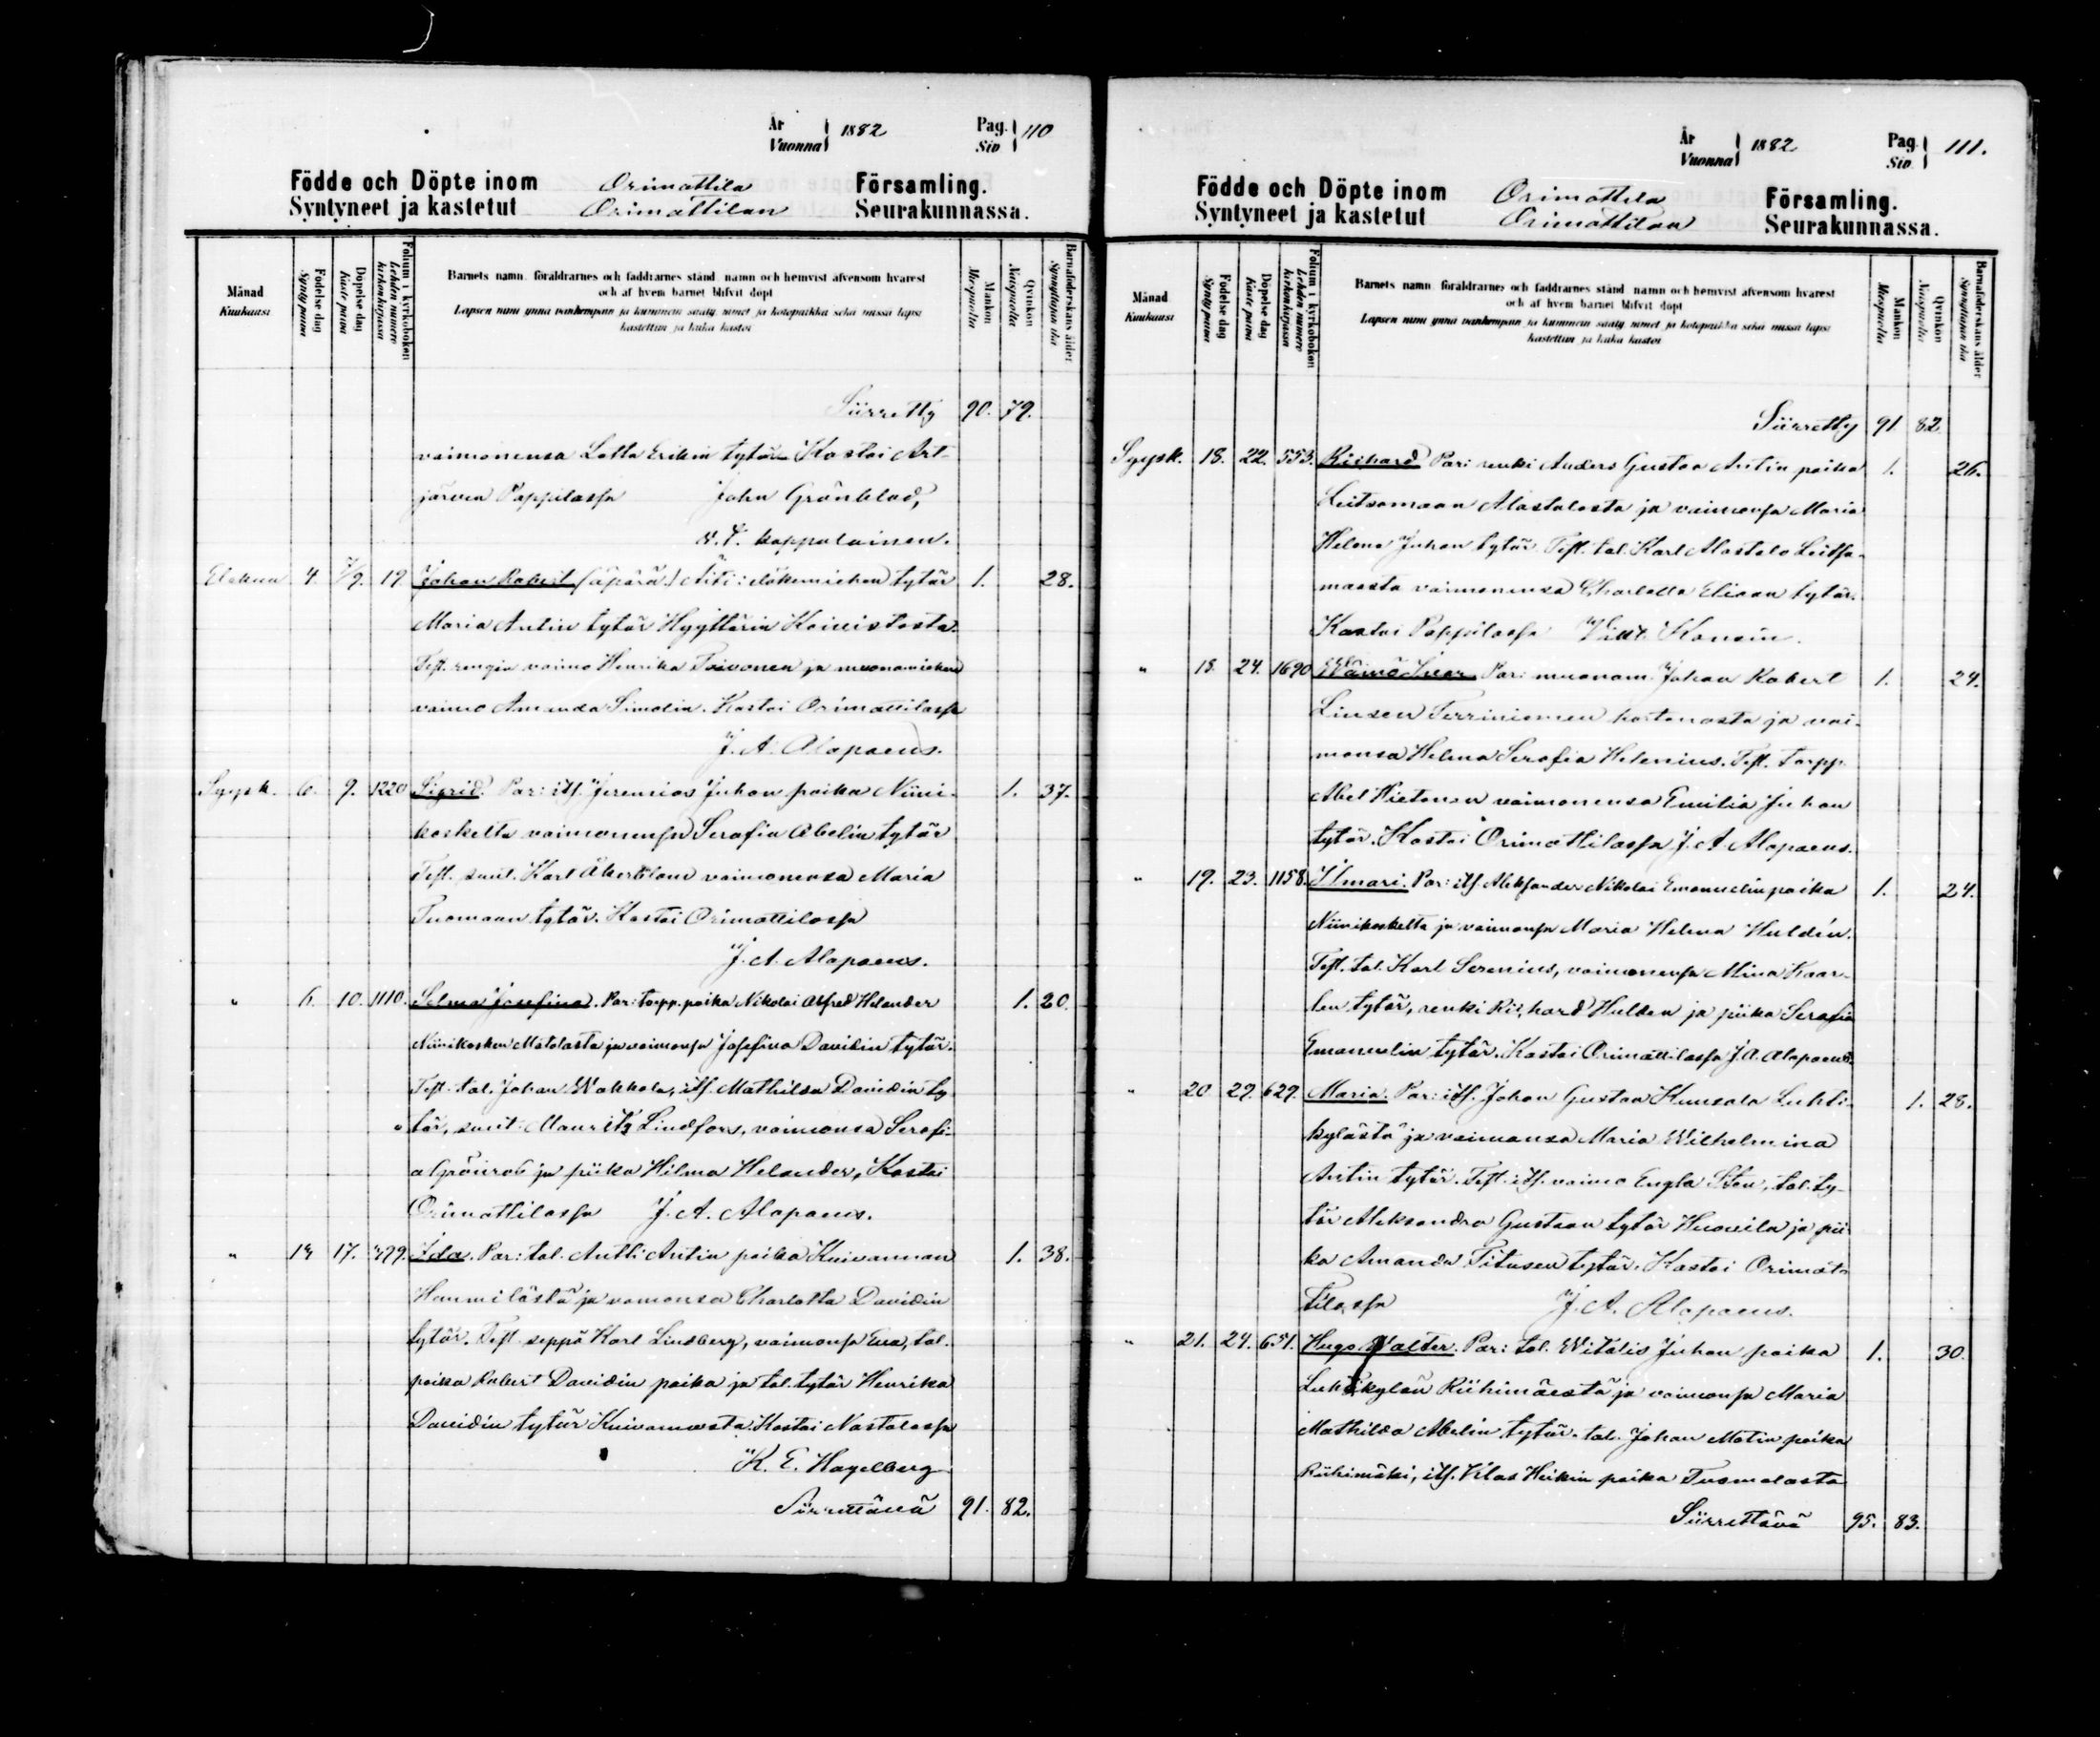 År
Vuonna } 1882
Pag.
Siv } 110
Födde och Döpte inom Orimattila Församling.
Syntyneet ja kastetut Orimattilan Seurakunnassa.
Månad
Kuukausi
Födelse dag
Synty päivä
Döpelse dag
Kaste päivä
Folium i kyrkoboken
Lehden numero kirkonkirjassa
Barnets namn, föräldrarnes och faddrarnes stånd, namn och hemvist äfvensom hvarest
och af hvem barnet blifvit döpt
Lapsen nimi ynnä vanhempain ja kummein sääty, nimet ja kotopaikka sekä missä lapsi
kastettiin ja kuka kastoi
Mankön
Miespuolia
Qvinkön
Naispuolia
Barnaföderskans ålder
Synnyttäjän ikä
Siirretty 90. 79.
vaimonensa Lotta Erikin tytär Kastoi Art-
järven Pappilassa John Grönblad,
v.t. kappalainen.
Elokuu 4. 7/9. 19. Johan Robert (äpärä) Äiti: eläkemiehen tytär 1. 28.
Maria Antin tytär Hyyttärin Koivistosta.
Test. rengin vaimo Henrika Toivonen ja muonamiehen
vaimo Amanda Simolin. Kastoi Orimattilassa
J. A. Alopaeus.
Syysk. 6. 9. 1220 Sigrid. Par: its. Jeremias Juhon poika Niini- 1. 37.
koskelta vaimonensa Serafia Abelin tytär
Test. suut. Karl Åkerblom vaimonensa Maria
Tuomaan tytär. Kastoi Orimattilassa
J. A. Alopaeus.
" 6. 10. 1110. Selma Josefina. Par: torpp. poika Nikolai Alfred Helander 1. 20.
Niinikosken Mätolasta ja vaimonsa Josefina Davidin tytär.
Test. tal. Johan Wokkola, its. Mathilda Davidin ty-
tär, suut. Mauritz Lindfors, vaimonsa Serafi-
a Grönroos ja piika Hilma Helander, Kastoi
Orimattilassa J. A. Alopaeus.
" 14 17. 479. Ida. Par: tal. Antti Antin poika Kuivannon 1. 38.
Hammilästä ja vaimonsa Charlotta Davidin
tytär. Test. seppä Karl Lindberg, vaimonsa Eva, tal.
poika Robert Davidin poika ja tal. tytär Henrika
Davidin tytär Kuivannosta. Kastoi Nastolassa
K. E. Hagelberg
Siirrettävä 91. 82.
År
Vuonna } 1882
Pag.
Siv. } 111.
Födde och Döpte inom Orimattila Församling.
Syntyneet ja kastetut Orimattilan Seurakunnassa.
Månad
Kuukausi
Födelse dag
Synty päivä
Döpelse dag
Kaste päivä
Folium i kyrkoboken
Lehden numero kirkonkirjassa
Barnets namn, föräldrarnes och faddrarnes stånd, namn och hemvist äfvensom hvarest
och af hvem barnet blifvit döpt
Lapsen nimi ynnä vanhempain ja kummein sääty, nimet ja kotopaikka sekä missä lapsi
kastettiin ja kuka kastoi
Mankön
Miespuolia
Qvinkön
Naispuolia
Barnaföderskans ålder
Synnyttäjän ikä
Siirretty 91 82
Syysk. 18. 22. 553. Richard Par: renki Anders Gustaa Antin poika 1. 26.
Leitsamaan Alastalosta ja vaimonsa Maria
Helena Juhon tytär. Test. tal. Karl Alastalo Leitsa-
maasta vaimonensa Charlotta Eliaan tytär.
Kastoi Pappilassa
" 18. 24. 1690 Wäinö Ivar Par: muonam. Johan Robert 1. 24.
Linden Terriniemen kartanosta ja vai-
monsa Helena Serafia Helenius. Test. torpp.
Abel Hietanen vaimonensa Emilia Juhon
tytär. Kastoi Orimattilassa J. A. Alopaeus.
" 19. 23. 1158. Ilmari. Par: its. Aleksander Nikolai Emanuelin poika 1. 24.
Niinikoskelta ja vaimonsa Maria Helena Huldén.
Test. tal. Karl Serenius, vaimonensa Mina Kaar-
len tytär, renki Richard Hulden ja piika Serafia
Emanuelin tytär. Kastoi Orimattilassa J. A. Alopaeus.
" 20 29. 629. Maria. Par: its. Johan Gustaa Kuusala Luhti- 1. 28.
kylästä ja vaimonsa Maria Wilhelmina
Antin tytär. Test. its. vaimo Engla Sten, tal. ty-
tär Aleksandra Gustaan tytär Huovila ja pii-
ka Amanda Titusen tytär. Kastoi Orimat-
tilassa J. A. Alopaeus.
" 21. 24. 651. Hugo Walter. Par: tal. Witalis Juhon poika 1. 30.
Luhtikylän Riihimäestä ja vaimonsa Maria
Mathilda Abelin tytär. tal. Johan Matin poika
Riihimäki, its. Vilas Heikin poika Tuomalasta
Siirrettävä 95. 83.